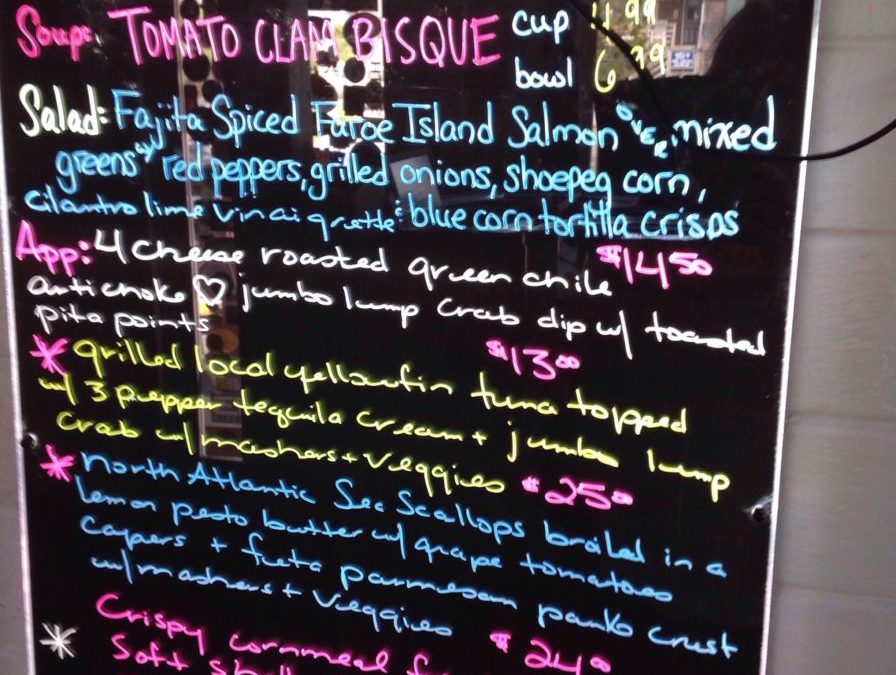 Soup: TOMATO CLAM BISQUE cup 4 99
bowl 6 79
Salad: Fajita Spiced Faroe Island Salmon OVER mixed
greens w/ red peppers, grilled onions, shoepeg corn,
cilantro lime vinaigrette & blue corn tortilla crisps
App: 4 cheese roasted green chile $14 50
artichoke ♡ jumbo lump crab dip w/ toasted
pita points $13 00
* grilled local yellowfin tuna topped
w/ 3 pepper tequila cream + jumbo lump
crab w/ mashers + veggies $25 00
* North Atlantic Sea Scallops broiled in a
lemon pesto butter w/ grape tomatoes
capers + feta parmesan panko crust
w/ mashers + veggies $24 00
* Crispy cornmeal
Soft Shell